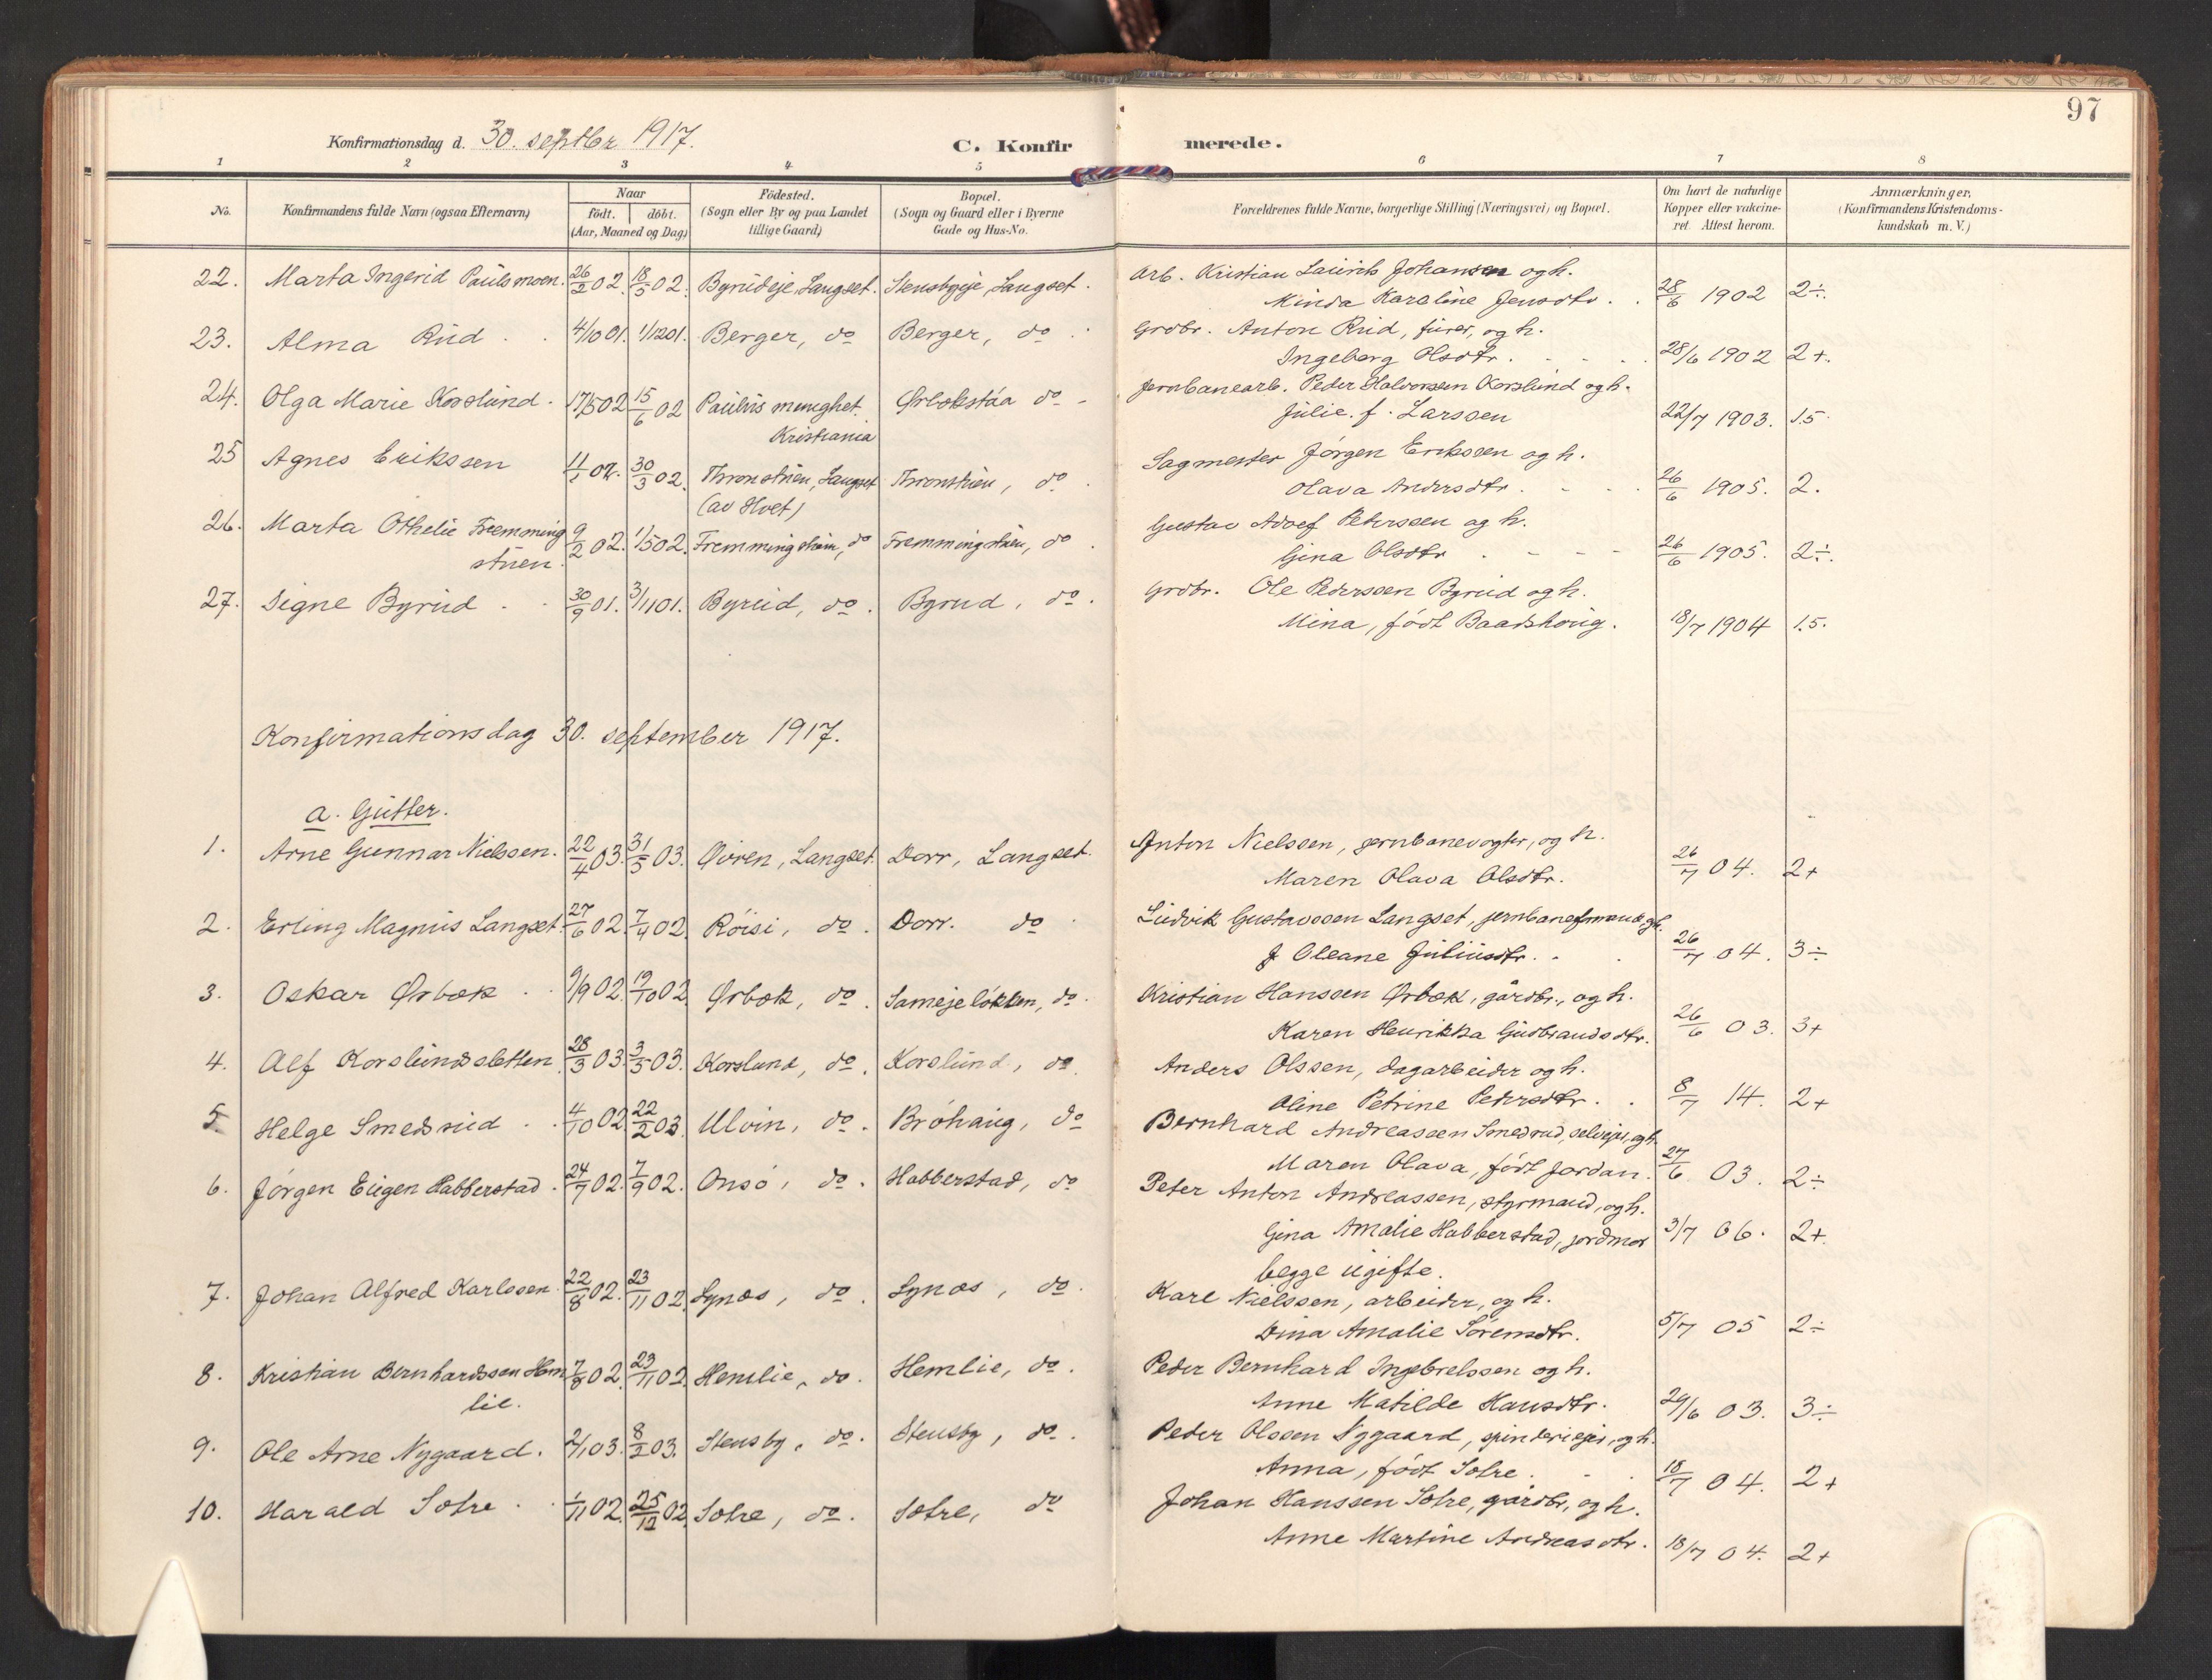 97
Konfirmationsdag d. 30. septbr 1917.
C. Konfirmerede.
1 2 3 4 5 6 7 8
No.
Konfirmandens fulde Navn (ogsaa Efternavn)
Naar
födt. döbt.
(Aar, Maaned og Dag)
Födested.
(Sogn eller By og paa Landet
tillige Gaard)
Bopæl.
(Sogn og Gaard eller i Byerne
Gade og Hus-No.
Forældrenes fulde Navne, borgerlige Stilling (Næringsvei) og Bopæl.
Om havt de naturlige
Kopper eller vakcine-
ret. Attest herom.
Anmærkninger,
(Konfirmandens Kristendoms-
kundskab m. V.)
22. Marta Ingerid Paulsmoen. 26/2 02. 18/5 02. Byrudeje, Langset. Stensbyeje, Langset. Arb. Kristian Laurits Johansen og h.
Minda Karoline Jensdtr. 28/6 1902 2÷.
23. Alma Rud 4/10 01. 1/12 01. Berger, do Berger, do Grdbr. Anton Rud, furer, og h.
Ingeborg Olsdtr. 28/6 1902 2+.
24. Olga Marie Korslund. 17/5 02 15/6 02 Paulus menighet. Ørbekstúa do Jernbanearb. Peder Halvorssen Korslund og h.
Kristiania
Julie. f. Larssen 22/7 1903. 1.5
25 Agnes Erikssen 30/3 02. Thronstuen, Langset Thronstuen, do Sagmester Jörgen Erikssen og h.
(av Hvet)
Olava Andersdtr. 26/6 1905. 2.
26. Marta Othelie Fremming 9/2 02. 1/5 02. Fremmingstuen, do Fremmingstuen, do Gustav Adolf Peterssen og h.
stuen.
Gina Olsdtr 26/6 1905. 2÷.
27. Signe Byrud 30/9 01. 3/11 01. Byrud, do. Byrud, do. Grdbr. Ole Pederssen Byrud og h.
Mina, födt Baadshaug. 18/7 1904 1.5.
Konfirmationsdag 30. september 1917.
a. Gutter.
1. Arne Gunnar Nielssen. 22/4 03. 31/5 03. Øvren, Langset. Dorr, Langset. Anton Nielssen, jernbanevogter, og h.
Maren Olava Olsdtr. 26/7 04. 2+
2. Erling Magnus Langset. 27/6 02. 7/4 02. Röisi, do. Dorr. do Ludvik Gustavssen Langset, jernbanefmand og h.
Oleane Juliusdtr. 26/7 04. 3÷
3. Oskar Ørbæk 9/9 02. 19/10 02 Ørbæk, do. Samejelökken, do. Kristian Hanssen Ørbæk, gårdbr., og h.
Karen Henrikka Gudbrandsdtr. 26/6 03. 3+
4. Alf Korslundsletten 28/3 03. 3/5 03. Korslund, do. Korslund, do. Anders Olssen, dagarbeider og h.
Oline Petrine Pedersdtr. 8/7 14. 2+
5. Helge Smedsrud 4/10 02. 22/2 03. Ulvin, do. Bröhaug, do Bernhard Andreassen Smedsrud, selvejer, og h.
Maren Olava, födt Jordan. 27/6 03. 2÷
6. Jörgen Eugen Habberstad. 24/7 02. 7/9 02. Onsö, do. Habberstad, do Peter Anton Andreassen, styrmand, og h.
Gina Amalie Habberstad, jordmor 3/7 06. 2+.
begge ugifte.
7. Johan Alfred Karlssen. 22/8 02. 23/11 02. Synæs, do. Synæs, do. Karl Nielssen, arbeider, og h.
Dina Amalie Sörensdtr. 5/7 05 2÷
8. Kristian Bernhardssen Hem 7/8 02. 23/11 02. Hemlie, do. Hemlie, do. Peder Bernhard Ingebretssen og h.
lie.
Anne Matilde Hansdtr. 29/6 03. 3÷
9. Ole Arne Nygaard. 2/1 03. 8/2 03. Stensby, do. Stensby, do. Peder Olssen Nygaard, spinderiejer, og h.
Anna, födt Sotre. 18/7 04. 2+
10. Harald Sotre 1/11 02. 25/12 02. Sotre, do. Sotre, do Johan Hanssen Sotre, gårdbr, og h.
Anne Martine Andreasdtr. 18/7 04. 2+